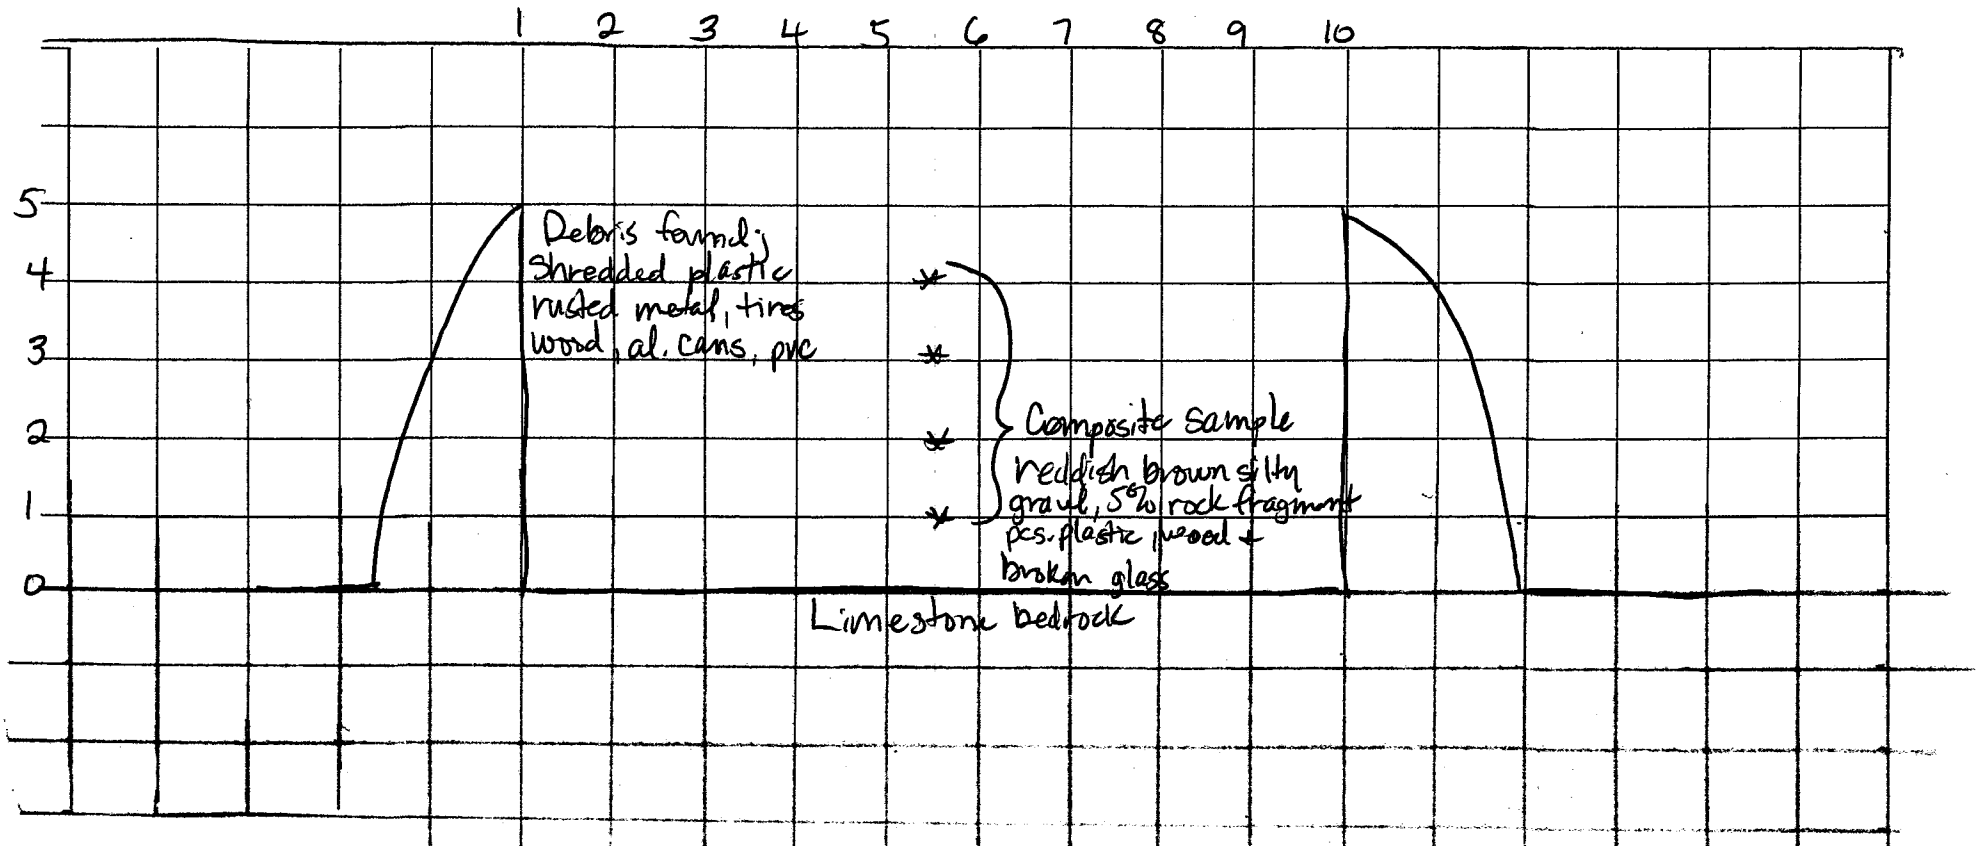 1 2 3 4 5 6 7 8 9 10
5
Debris found;
shredded plastic
4
rusted metal, tires
wood, al. cans, pvc
3
2
Composite sample
reddish brown silty
1
gravel, 5% rock fragment
pcs. plastic, wood +
broken glass
0
Limestone bedrock